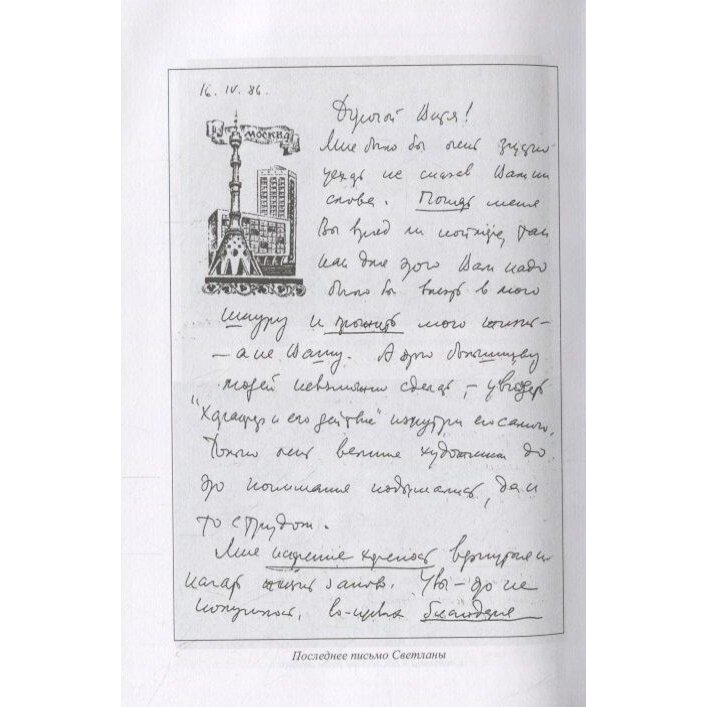 16. IV. 86.
МОСКВА
Дорогой Витя!
Мне было бы очень трудно
уехать не сказав Вам ни
слова. Понять меня
Вы вряд ли могли, так
как для этого Вам надо
было бы влезть в мою
шкуру и прожить мою жизнь —
— а не Вашу. А это большинству
людей невозможно сделать, — увидеть
"характер и его действие" изнутри его самого.
Только очень великие художники до
этого понимания поднимались, да и
то с трудом.
Мне вернуться и
начать жизнь заново. Увы — это не
получилось, во-первых благодаря
Последнее письмо Светланы